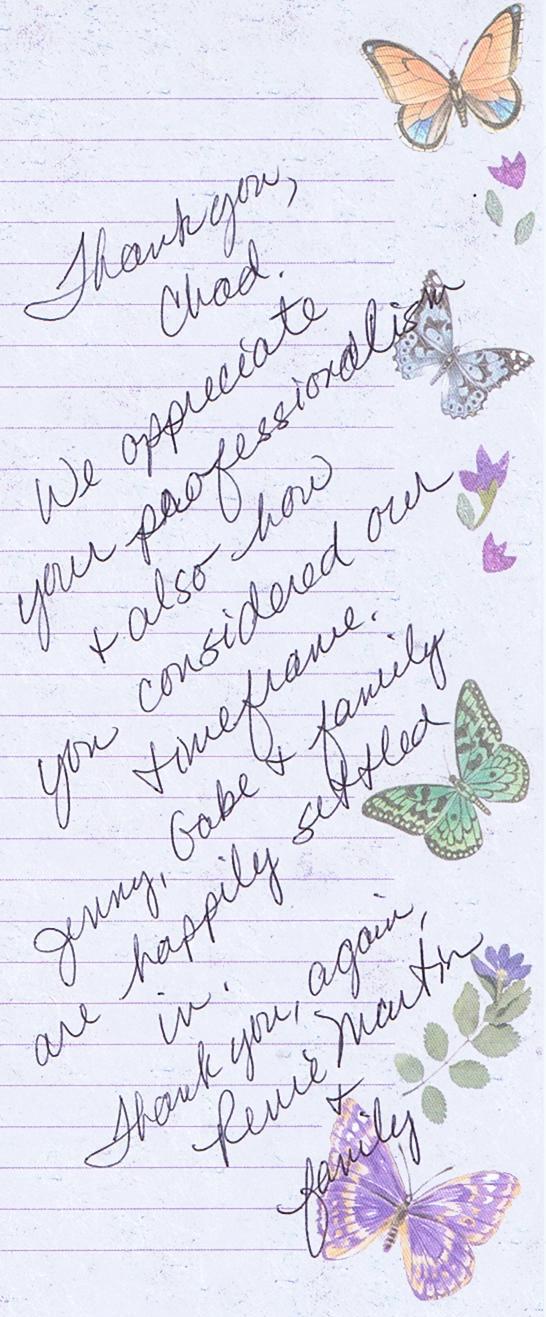 Thank you,
Chad.
We appreciate
your professionalism
+ also how
you considered our
timeframe.
Jenny, Gabe + family
are happily settled
in.
Thank you, again,
Renie Martin
+
family